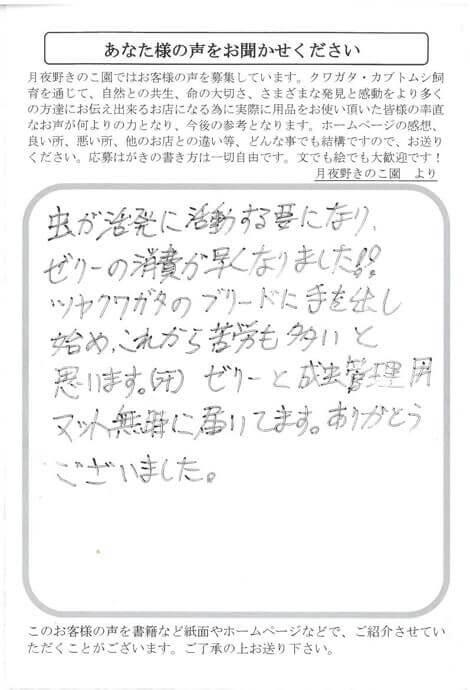 あなた様の声をお聞かせください
月夜野きのこ園ではお客様の声を募集しています。クワガタ・カブトムシ飼
育を通じて、自然との共生、命の大切さ、さまざまな発見と感動をより多く
の方達にお伝え出来るお店になる為に実際に用品をお使い頂いた皆様の率直
なお声が何よりの力となり、今後の参考となります。ホームページの感想、
良い所、悪い所、他のお店との違い等、どんな事でも結構ですので、お送り
ください。応募はがきの書き方は一切自由です。文でも絵でも大歓迎です！
月夜野きのこ園　より
虫が活発に活動する要になり、
ゼリーの消費が早くなりました!!
ツヤクワガタのブリードに手を出し
始め、これから苦労も多いと
思います。 ゼリーと成虫管理用
マット無時に届いてます。ありがとう
ございました。
このお客様の声を書籍など紙面やホームページなどで、ご紹介させてい
ただくことがございます。ご了承の上お送り下さい。